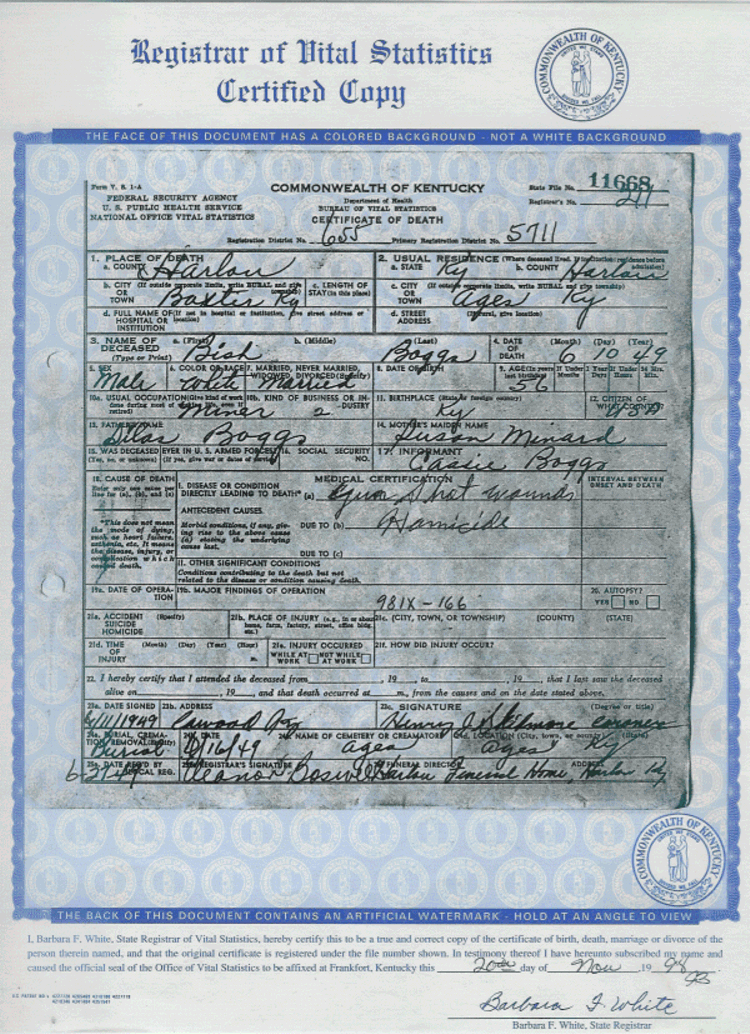 Registrar of Vital Statistics
Certified Copy
COMMONWEALTH OF KENTUCKY
UNITED WE STAND
DIVIDED WE FALL
THE FACE OF THIS DOCUMENT HAS A COLORED BACKGROUND - NOT A WHITE BACKGROUND
Form V. S. 1-A
FEDERAL SECURITY AGENCY
U. S. PUBLIC HEALTH SERVICE
NATIONAL OFFICE VITAL STATISTICS
COMMONWEALTH OF KENTUCKY
Department of Health
BUREAU OF VITAL STATISTICS
CERTIFICATE OF DEATH
State File No. 11668
Registrar's No. 211
Registration District No. 655 Primary Registration District No. 5711
1. PLACE OF DEATH
a. COUNTY Harlan
2. USUAL RESIDENCE (Where deceased lived. If institution: residence before admission)
a. STATE Ky b. COUNTY Harlan
b. CITY (If outside corporate limits, write RURAL and give township) OR TOWN Baxter Ky
c. LENGTH OF STAY (in this place)
c. CITY (If outside corporate limits, write RURAL and give township) OR TOWN Ages Ky
d. FULL NAME OF (If not in hospital or institution, give street address or location) HOSPITAL OR INSTITUTION
d. STREET ADDRESS (If rural, give location)
3. NAME OF DECEASED (Type or Print) a. (First) Bish b. (Middle) (Last) Boggs
4. DATE OF DEATH (Month) (Day) (Year) 6 10 49
5. SEX Male
6. COLOR OR RACE White
7. MARRIED, NEVER MARRIED, WIDOWED, DIVORCED (Specify) Married
8. DATE OF BIRTH
9. AGE (In years last birthday) 56 If Under 1 Year If Under 24 Hrs. Months Days Hours Min.
10a. USUAL OCCUPATION (Give kind of work done during most of working life, even if retired) Miner
10b. KIND OF BUSINESS OR INDUSTRY 2
11. BIRTHPLACE (State or foreign country) Ky
12. CITIZEN OF WHAT COUNTRY? USA
13. FATHER'S NAME Silas Boggs
14. MOTHER'S MAIDEN NAME Susan Minard
15. WAS DECEASED EVER IN U. S. ARMED FORCES? (Yes, no, or unknown) (If yes, give war or dates of service)
16. SOCIAL SECURITY NO.
17. INFORMANT Cassie Boggs
18. CAUSE OF DEATH
Enter only one cause per line for (a), (b), and (c)
MEDICAL CERTIFICATION
INTERVAL BETWEEN ONSET AND DEATH
I. DISEASE OR CONDITION DIRECTLY LEADING TO DEATH* (a) Gun shot wounds
ANTECEDENT CAUSES.
*This does not mean the mode of dying, such as heart failure, asthenia, etc. It means the disease, injury, or complication which caused death.
Morbid conditions, if any, giving rise to the above cause (a) stating the underlying cause last.
DUE TO (b) Homicide
DUE TO (c)
II. OTHER SIGNIFICANT CONDITIONS
Conditions contributing to the death but not related to the disease or condition causing death.
19a. DATE OF OPERATION
19b. MAJOR FINDINGS OF OPERATION
981X-166
20. AUTOPSY?
YES NO
21a. ACCIDENT SUICIDE HOMICIDE (Specify)
21b. PLACE OF INJURY (e.g., in or about home, farm, factory, street, office bldg. etc.)
21c. (CITY, TOWN, OR TOWNSHIP) (COUNTY) (STATE)
21d. TIME OF INJURY (Month) (Day) (Year) (Hour) m.
21e. INJURY OCCURRED WHILE AT WORK NOT WHILE AT WORK
21f. HOW DID INJURY OCCUR?
22. I hereby certify that I attended the deceased from , 19 to , 19 , that I last saw the deceased
alive on , 19 , and that death occurred at m., from the causes and on the date stated above.
23a. DATE SIGNED 6/11/1949
23b. ADDRESS Cawood Ky
23c. SIGNATURE (Degree or title) Henry Coroner
24a. BURIAL, CREMATION, REMOVAL (Specify) Burial
24b. DATE 6/16/49
24c. NAME OF CEMETERY OR CREMATORY Ages
24d. LOCATION (City, town, or county) (State) Ages Ky
25a. DATE REC'D BY LOCAL REG. 6-27-49
25b. REGISTRAR'S SIGNATURE Eleanor Boswell
FUNERAL DIRECTOR ADDRESS Harlan Funeral Home, Harlan Ky
COMMONWEALTH OF KENTUCKY
THE BACK OF THIS DOCUMENT CONTAINS AN ARTIFICIAL WATERMARK - HOLD AT AN ANGLE TO VIEW
I, Barbara F. White, State Registrar of Vital Statistics, hereby certify this to be a true and correct copy of the certificate of birth, death, marriage or divorce of the
person therein named, and that the original certificate is registered under the file number shown. In testimony thereof I have hereunto subscribed my name and
caused the official seal of the Office of Vital Statistics to be affixed at Frankfort, Kentucky this 20th day of Nov , 19 98
Barbara F. White
Barbara F. White, State Registrar